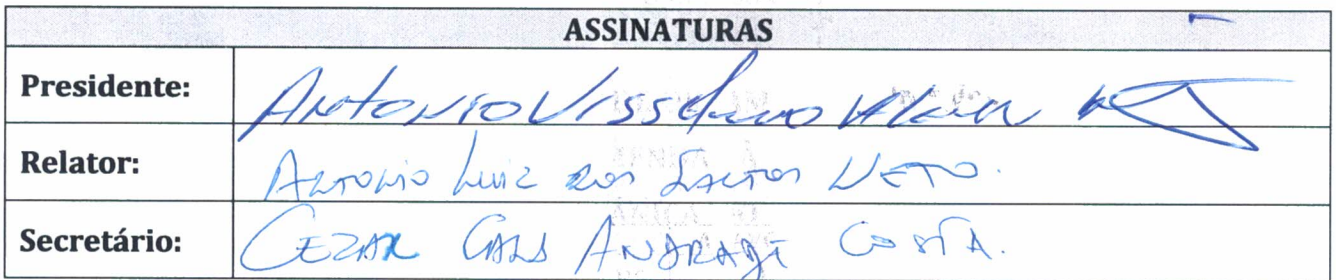 ASSINATURAS
Presidente: Antonio
Relator: Antonio Luiz dos Santos Neto.
Secretário: Cezar Cals Andrade Costa.